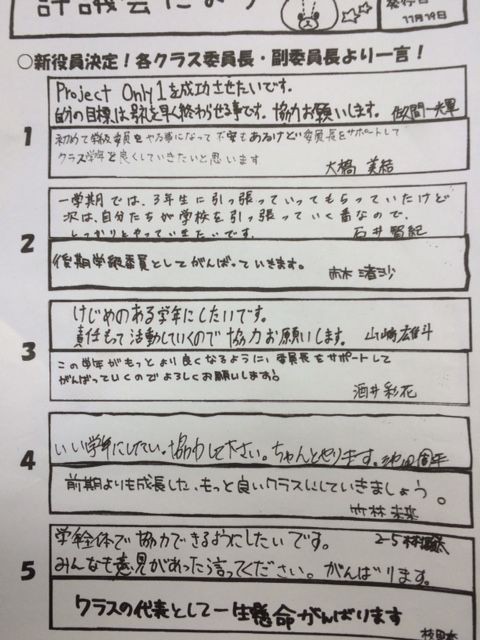 評議会だより
11月19日
○新役員決定！各クラス委員長・副委員長より一言！
1
Project Only 1を成功させたいです。
自分の目標は号礼を早く終わらせる事です。協力お願いします。
初めて学級委員をやる事になって不安もあるけど委員長をサポートして
クラス学年を良くしていきたいと思います
大橋 美結
2
一学期では、3年生に引っ張っていってもらっていたけど
次は、自分たちが学校を引っ張っていく番なので、
しっかりとやっていきたいです。 石井智紀
後期学級委員としてがんばっていきます。
3
けじめのある学年にしたいです。
責任もって活動していくので協力お願いします。 山崎 雄斗
この学年がもっとより良くなるように、委員長をサポートして
がんばっていくのでよろしくお願いします。
酒井彩花
4
いい学年にしたい。協力して下さい。ちゃんとやります。池田周平
前期よりも成長した、もっと良いクラスにしていきましょう。
竹林 未来
5
学年全体で協力できるようにしたいです。 2-5
みんなも意見があったら言ってください。がんばります。
クラスの代表として一生懸命がんばります